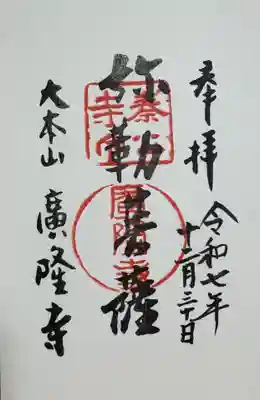 奉拝
令和七年
十二月三十日
弥勒菩薩
廣隆寺
大本山 廣隆寺